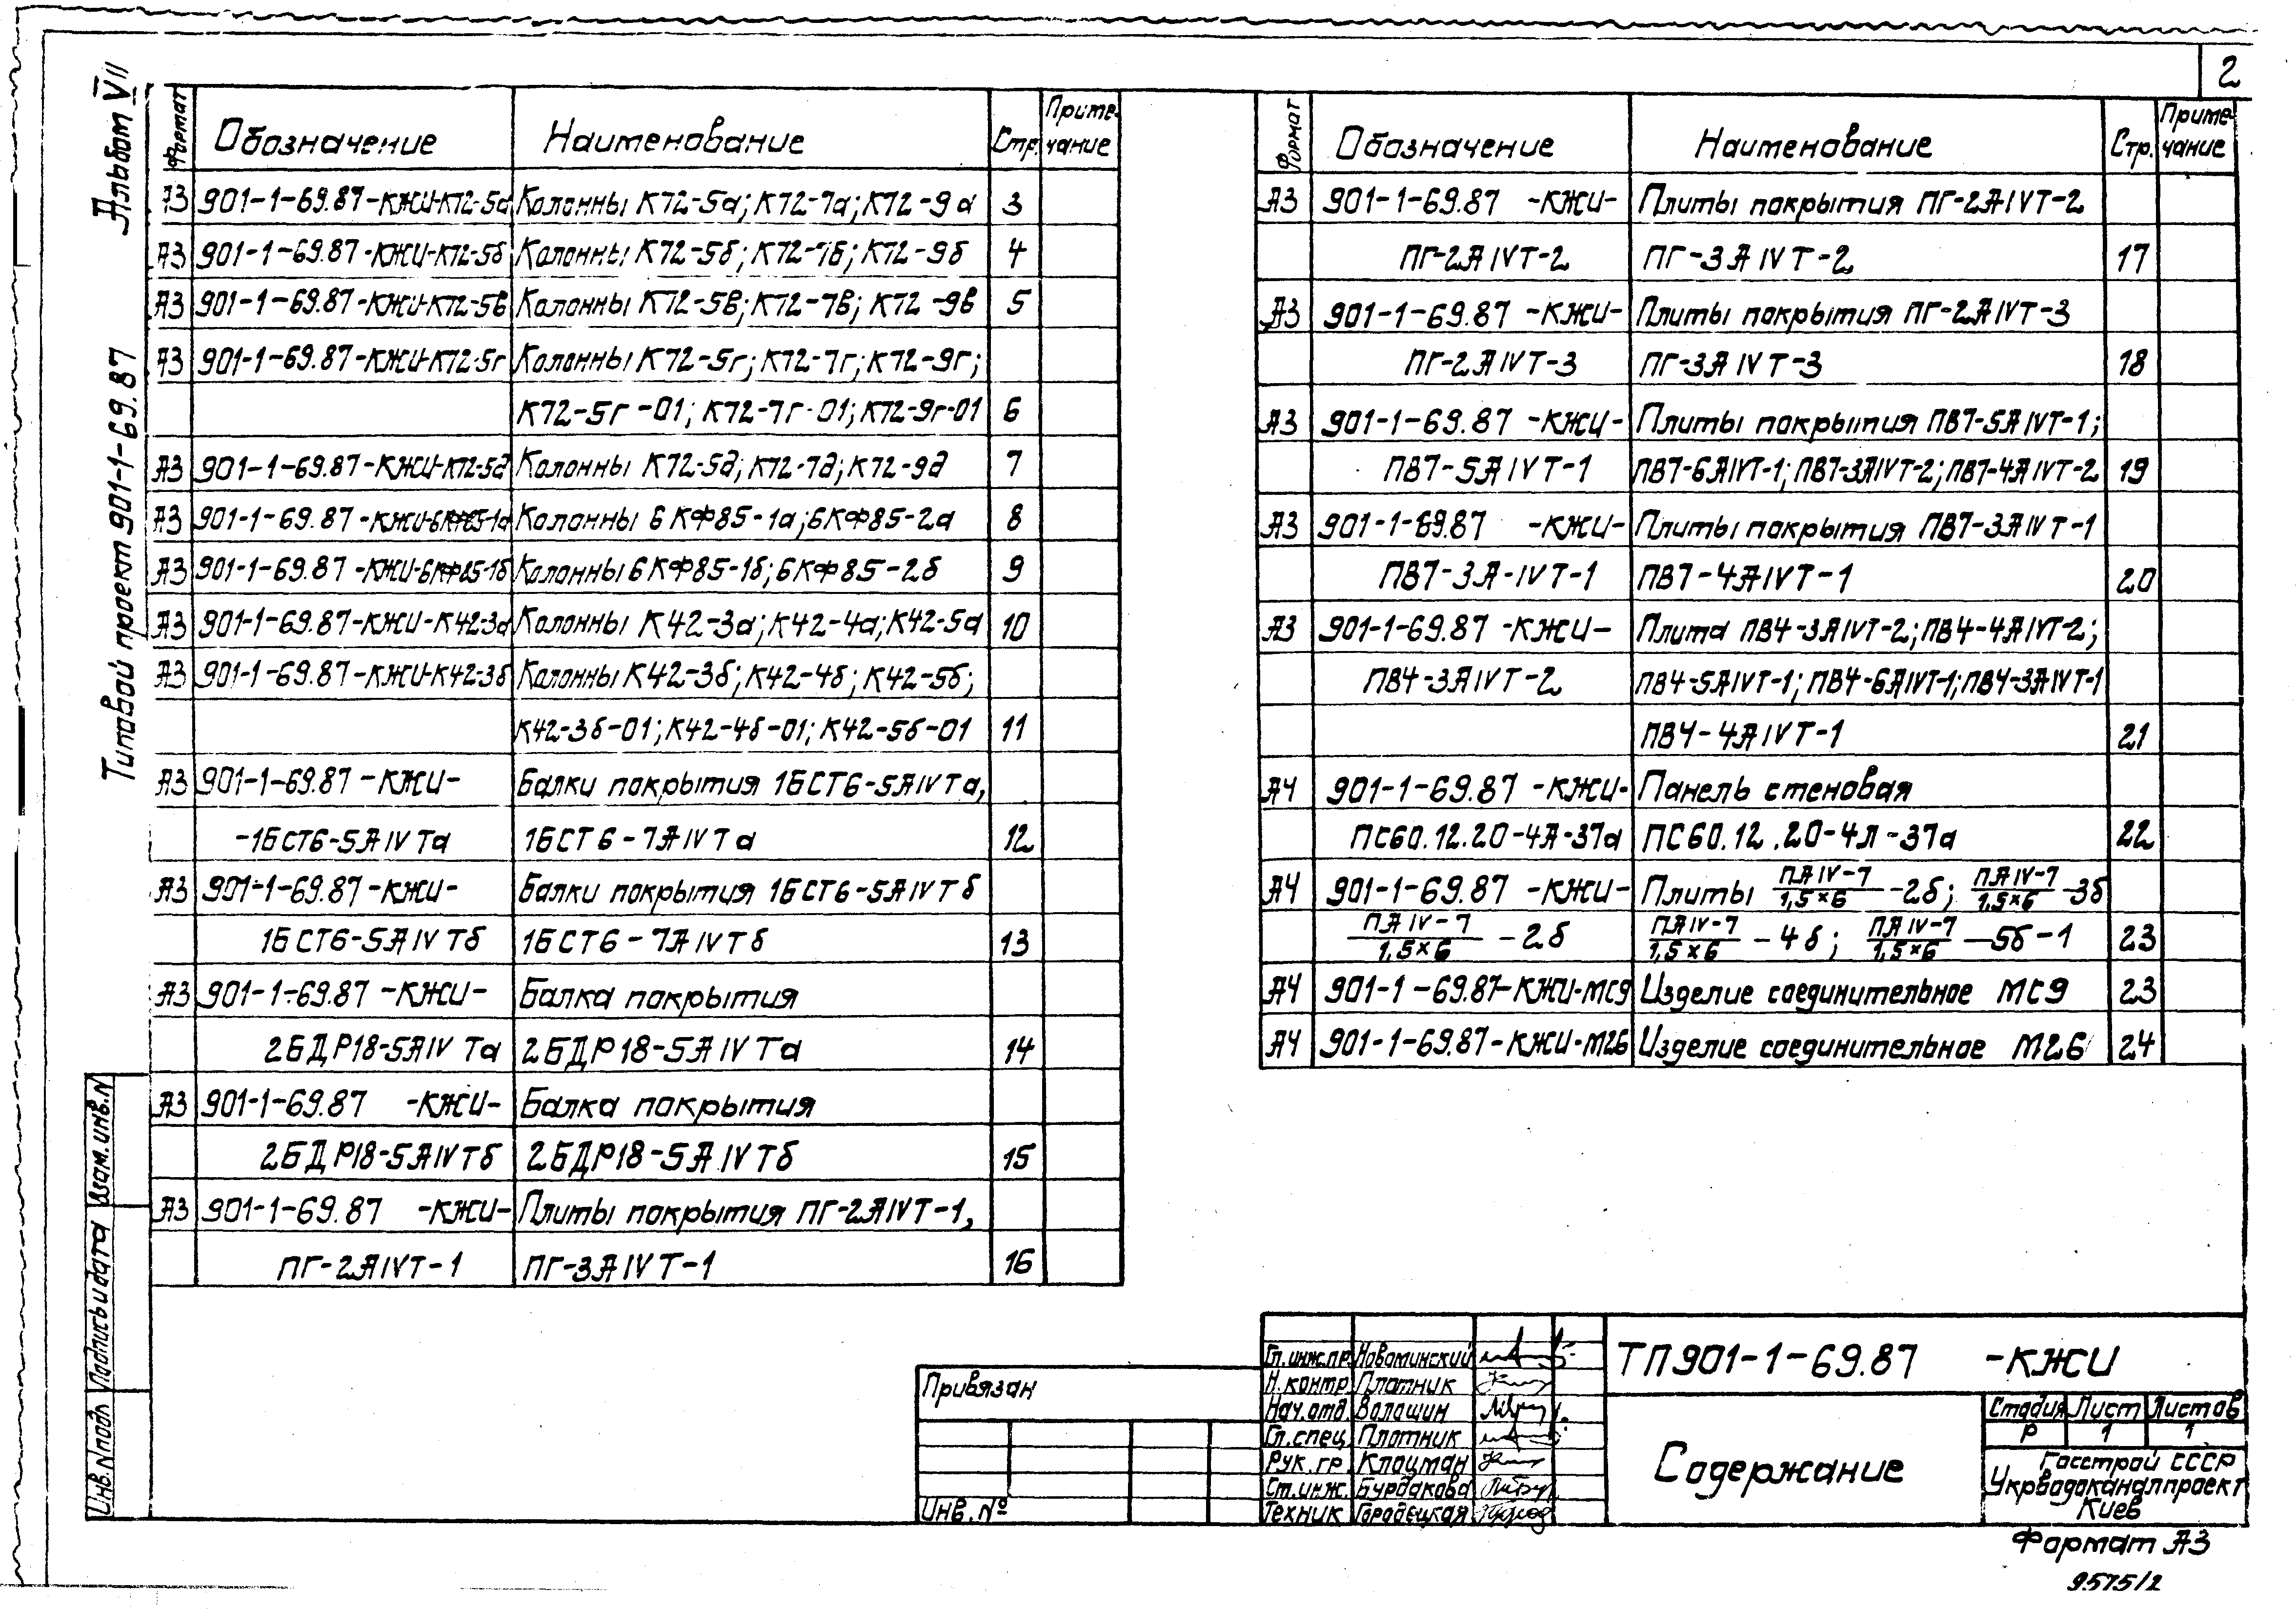 2
Альбом VII
Типовой проект 901-1-69.87
Формат Обозначение Наименование Стр. Приме-чание
А3 901-1-69.87-КЖИ-К72-5а Колонны К72-5а; К72-7а; К72-9а 3
А3 901-1-69.87-КЖИ-К72-5б Колонны К72-5б; К72-7б; К72-9б 4
А3 901-1-69.87-КЖИ-К72-5в Колонны К72-5в; К72-7в; К72-9в 5
А3 901-1-69.87-КЖИ-К72-5г Колонны К72-5г; К72-7г; К72-9г;
К72-5г-01; К72-7г-01; К72-9г-01 6
А3 901-1-69.87-КЖИ-К72-5д Колонны К72-5д; К72-7д; К72-9д 7
А3 901-1-69.87-КЖИ-6КФ85-1а Колонны 6КФ85-1а; 6КФ85-2а 8
А3 901-1-69.87-КЖИ-6КФ85-1б Колонны 6КФ85-1б; 6КФ85-2б 9
А3 901-1-69.87-КЖИ-К42-3а Колонны К42-3а; К42-4а; К42-5а 10
А3 901-1-69.87-КЖИ-К42-3б Колонны К42-3б; К42-4б; К42-5б;
К42-3б-01; К42-4б-01; К42-5б-01 11
А3 901-1-69.87-КЖИ- Балки покрытия 1БСТ6-5АIVТа,
-1БСТ6-5АIVТа 1БСТ6-7АIVТа 12
А3 901-1-69.87-КЖИ- Балки покрытия 1БСТ6-5АIVТб
1БСТ6-5АIVТб 1БСТ6-7АIVТб 13
А3 901-1-69.87-КЖИ- Балка покрытия
2БДР18-5АIVТа 2БДР18-5АIVТа 14
А3 901-1-69.87 -КЖИ- Балка покрытия
2БДР18-5АIVТб 2БДР18-5АIVТб 15
А3 901-1-69.87 -КЖИ- Плиты покрытия ПГ-2АIVТ-1,
ПГ-2АIVТ-1 ПГ-3АIVТ-1 16
Формат Обозначение Наименование Стр. Приме-чание
А3 901-1-69.87 -КЖИ- Плиты покрытия ПГ-2АIVТ-2
ПГ-2АIVТ-2 ПГ-3АIVТ-2 17
А3 901-1-69.87 -КЖИ- Плиты покрытия ПГ-2АIVТ-3
ПГ-2АIVТ-3 ПГ-3АIVТ-3 18
А3 901-1-69.87 -КЖИ- Плиты покрытия ПВ7-5АIVТ-1;
ПВ7-5АIVТ-1 ПВ7-6АIVТ-1; ПВ7-3АIVТ-2; ПВ7-4АIVТ-2 19
А3 901-1-69.87 -КЖИ- Плиты покрытия ПВ7-3АIVТ-1
ПВ7-3А-IVТ-1 ПВ7-4АIVТ-1 20
А3 901-1-69.87 -КЖИ- Плита ПВ4-3АIVТ-2; ПВ4-4АIVТ-2;
ПВ4-3АIVТ-2 ПВ4-5АIVТ-1; ПВ4-6АIVТ-1; ПВ4-3АIVТ-1
ПВ4-4АIVТ-1 21
А4 901-1-69.87 -КЖИ- Панель стеновая
ПС60.12.20-4А-37а ПС60.12.20-4л-37а 22
А4 901-1-69.87 -КЖИ- Плиты ПАIV-7/1,5×6-2б; ПАIV-7/1,5×6-3б
ПАIV-7/1,5×6-2б ПАIV-7/1,5×6-4б; ПАIV-7/1,5×6-5б-1 23
А4 901-1-69.87-КЖИ-МС9 Изделие соединительное МС9 23
А4 901-1-69.87-КЖИ-М26 Изделие соединительное М26 24
Взам.инв.N
Подпись и дата
Инв.N подл
Привязан
Инв.№
Гл.инж.пр. Новоминский
Н.контр Плотник
Нач.отд. Волошин
Гл.спец. Плотник
Рук.гр. Клоцман
Ст.инж. Бурдакова
Техник Городецкая
ТП901-1-69.87 -КЖИ
Содержание
Стадия Лист Листов
Р 1 1
Госстрой СССР
Укрводоканалпроект
Киев
Формат А3
9575/2